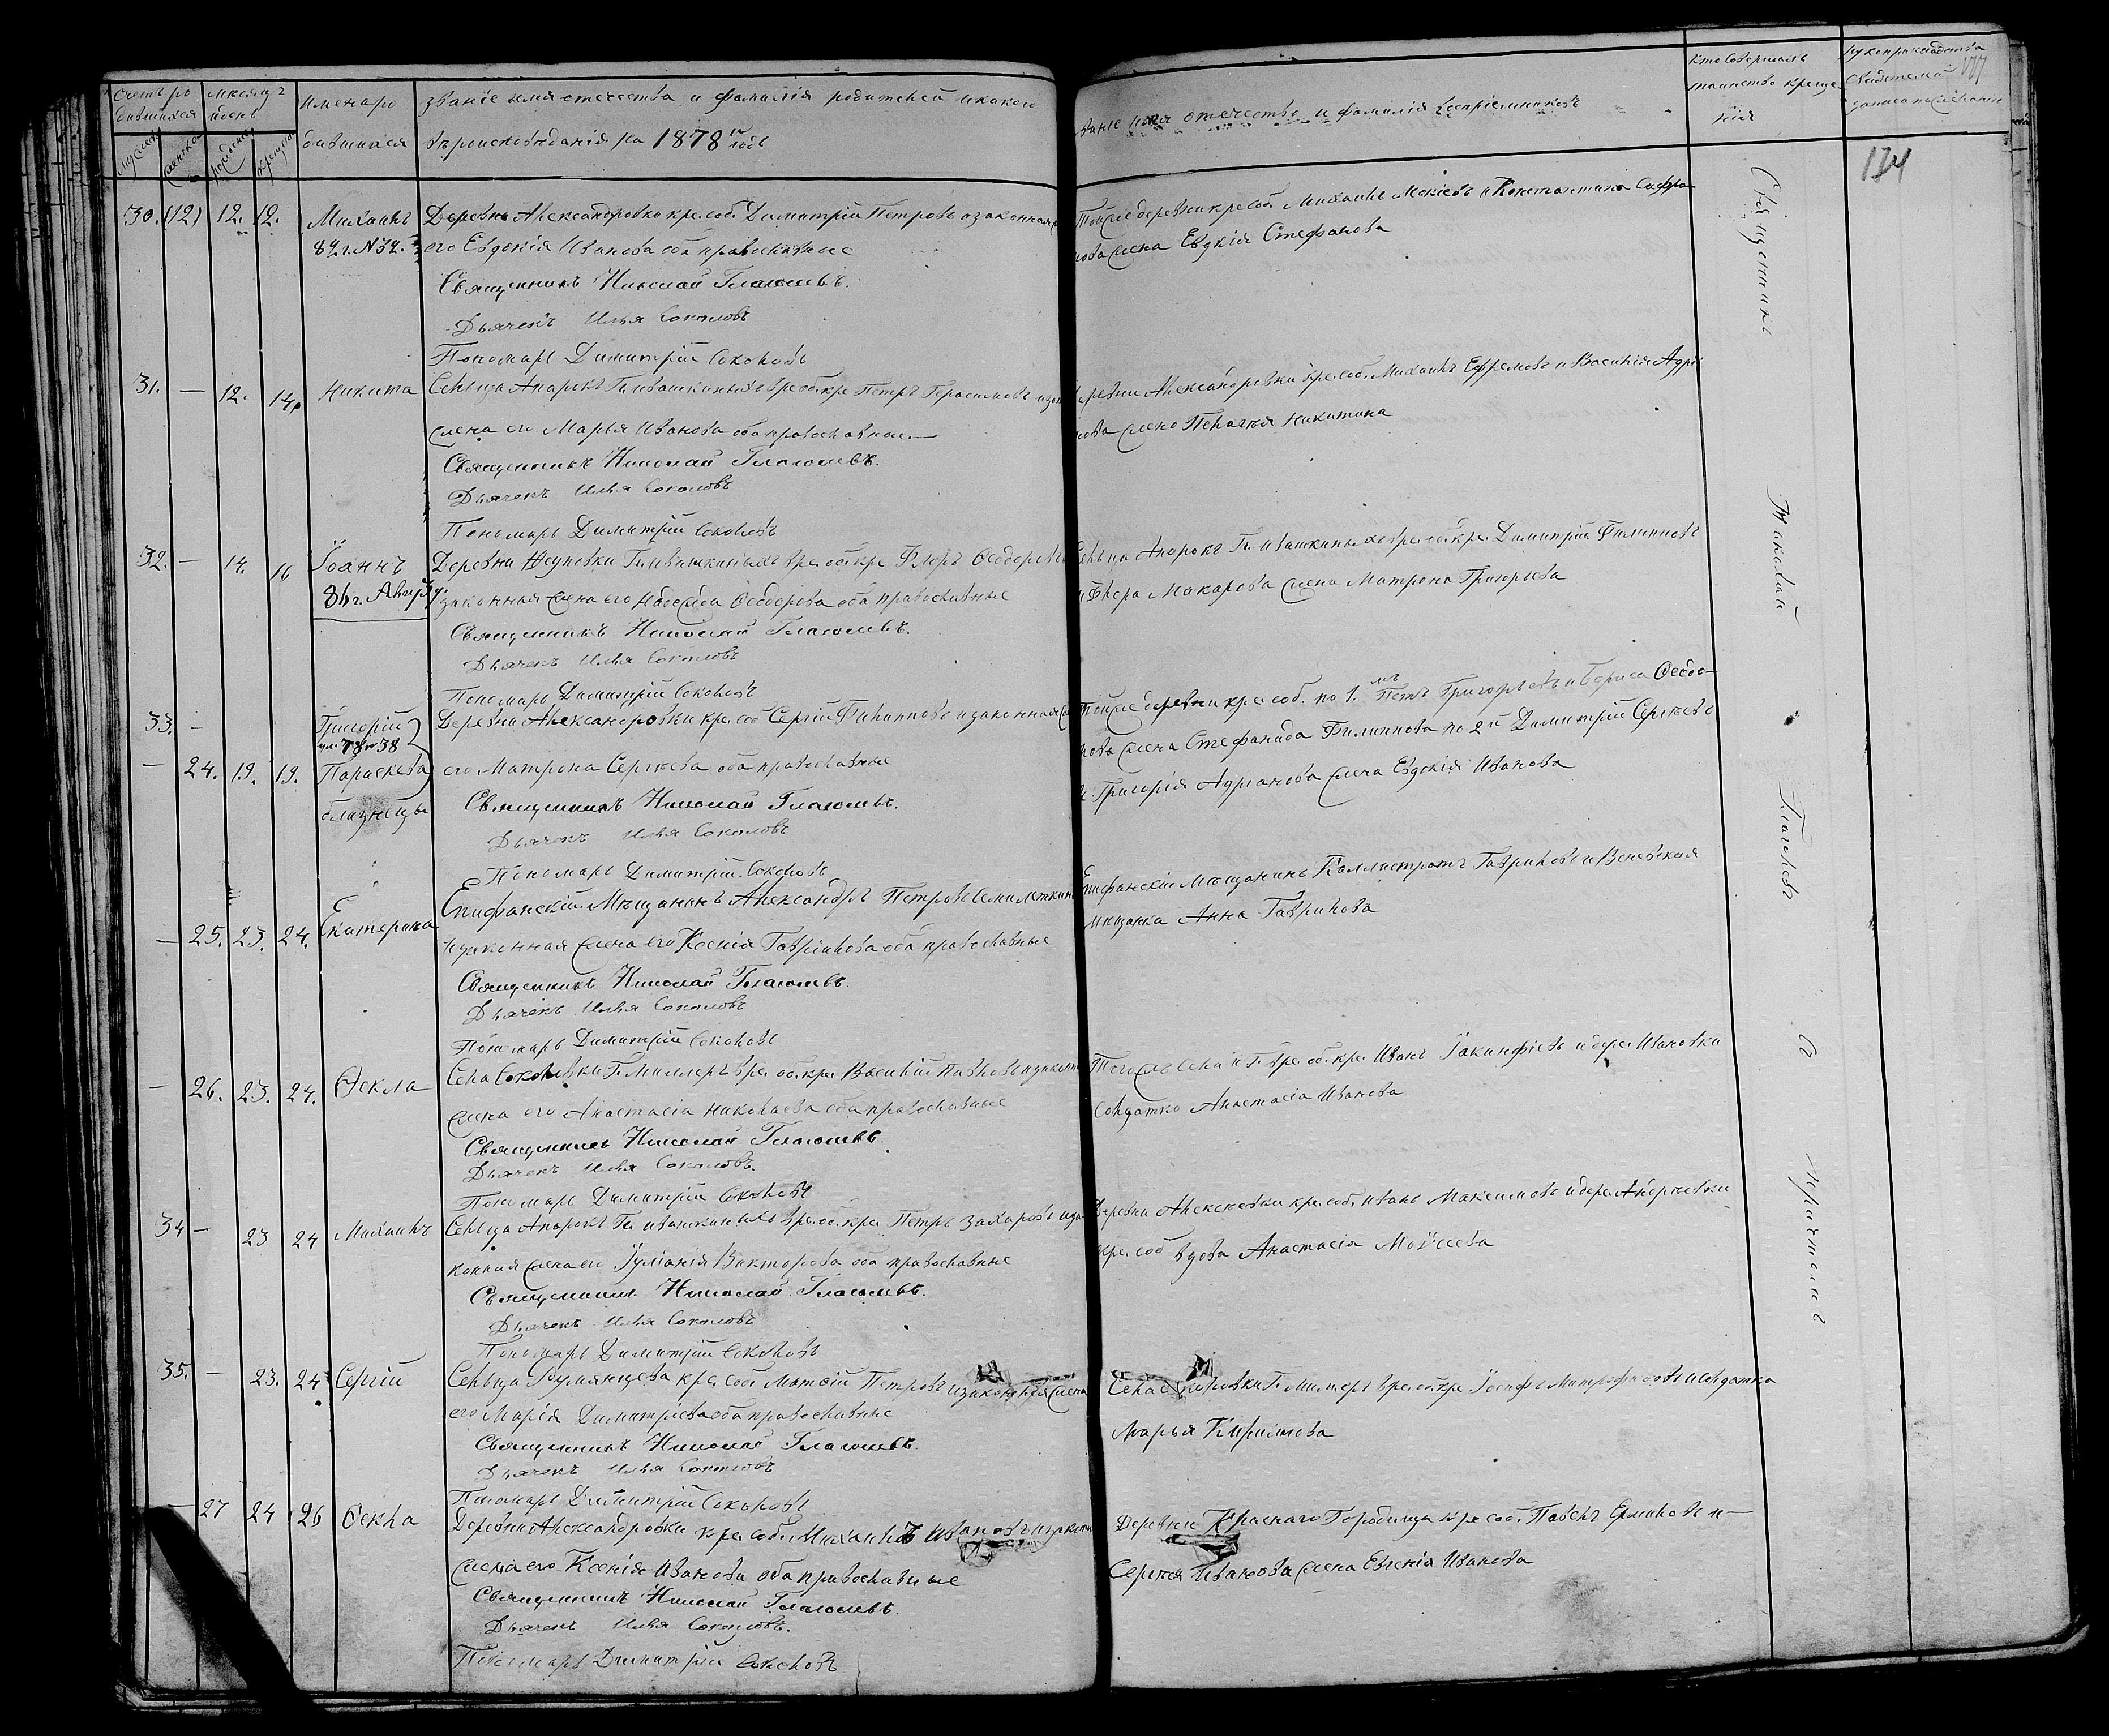 Счетъ ро
дившихся
мѣсяцъ
день
Имена ро
дившихся
мужеска
женска
рожденія
крещенія
званіе имя отечество и фамилія родителей и какого
вѣроисповѣданія на 1878й годъ
званіе имя отечество и фамилія воспріемниковъ
кто совершалъ
таинство креще
нія
рукоприкладство
свидетелей
записи по желанію
177
174
30. (12) 12. 12. Михаилъ Деревни Александровки кре. соб. Димитрій Петровъ и законная
его Евдокія Иванова оба православные
Священникъ Николай Глаголевъ.
Дьячекъ Илья Соколовъ
Пономарь Димитрій Соколовъ
Тойже деревни кре соб. Михаилъ и Константина
жена Евдкія Стефанова
31. — 12. 14. Никита Сельца Апарокъ вре. об. кре. Петръ Герасимовъ и
жена его Марья Иванова оба православные —
Священникъ Николай Глаголевъ.
Дьячекъ Илья Соколовъ
Пономарь Димитрій Соколовъ
Деревни Александровки кре. соб. Михаилъ Ефремовъ и Василія Адрі
нова жена Пелагея Никитина
32. — 14. 16 Іоаннъ Деревни вре. об. кре. Флоръ Ѳеодоровъ
законная жена его Ѳеодорова оба православные
Священникъ Николай Глаголевъ.
Дьячекъ Илья Соколовъ
Пономарь Димитрій Соколовъ
Сельца Апарокъ вре. об. кре. Димитрій Филиповъ
и Флора Макарова жена Матрона Григорьева
33. — Григорій Деревни Александровки кре соб Сергій Филипповъ и законная
78 38
— 24. 19. 19. Параскева его Матрона Сергѣева оба православные
близнецы
Священникъ Николай Глаголевъ.
Дьячекъ Илья Соколовъ
Пономарь Димитрій Соколовъ
Тойже деревни кре соб. по 1. мъ Петръ Григорьевъ и Бориса Ѳеодо-
рова жена Стефанида Филиппова по 2й Димитрій Сергѣевъ
и Григорія Адріанова жена Евдокія Иванова
— 25. 23. 24. Екатерина Епифанскій Мѣщанинъ Александръ Петровъ
и законная жена его Ксенія Гаврилова оба православные
Священникъ Николай Глаголевъ.
Дьячекъ Илья Соколовъ
Пономарь Димитрій Соколовъ
Епифанскій Мѣщанинъ Каллистратъ Гавриловъ и Веневская
мѣщанка Анна Гаврилова
— 26. 23. 24. Ѳекла Села Соколовки Г. Миллеръ вре. об. кре. Василій Павловъ и
жена его Анастасія Николаева оба православные
Священникъ Николай Глаголевъ.
Дьячекъ Илья Соколовъ.
Пономарь Димитрій Соколовъ
Тогоже села и Г. вре. об. кре. Иванъ Іакинфіевъ и дере. Ивановки
солдатка Анастасія Иванова
34 — 23 24 Михаилъ Сельца Апарокъ вре. об. кре. Петръ Захаровъ и за
конная жена его Іуліанія Викторова оба православные
Священникъ Николай Глаголевъ.
Дьячекъ Илья Соколовъ
Пономарь Димитрій Соколовъ
Деревни Алексѣевки кре. соб. Иванъ Максимовъ и дере. Андреевки
кре. соб вдова Анастасія Моѵсеева
35. — 23. 24 Сергій Сельца Румянцева кре. соб. Матѳій Петровъ и законная жена
его Марія Димитріева оба православные
Священникъ Николай Глаголевъ.
Дьячекъ Илья Соколовъ
Пономарь Димитрій Соколовъ
Г. Миллеръ вре. об. кре. Іосифъ Митрофановъ и солдатка
Марья Кирилова
— 27 24 26 Ѳекла Деревни Александровки кре. соб. Михаилъ Ивановъ и
жена его Ксенія Иванова оба православные
Священникъ Николай Глаголевъ.
Дьячекъ Илья Соколовъ.
Пономарь Димитрій Соколовъ
Деревни Краснаго Городища кре соб. Павелъ Ермиловъ и —
Сергея Иванова жена Евгенія Иванова
Священникъ Николай Глаголевъ съ причтомъ